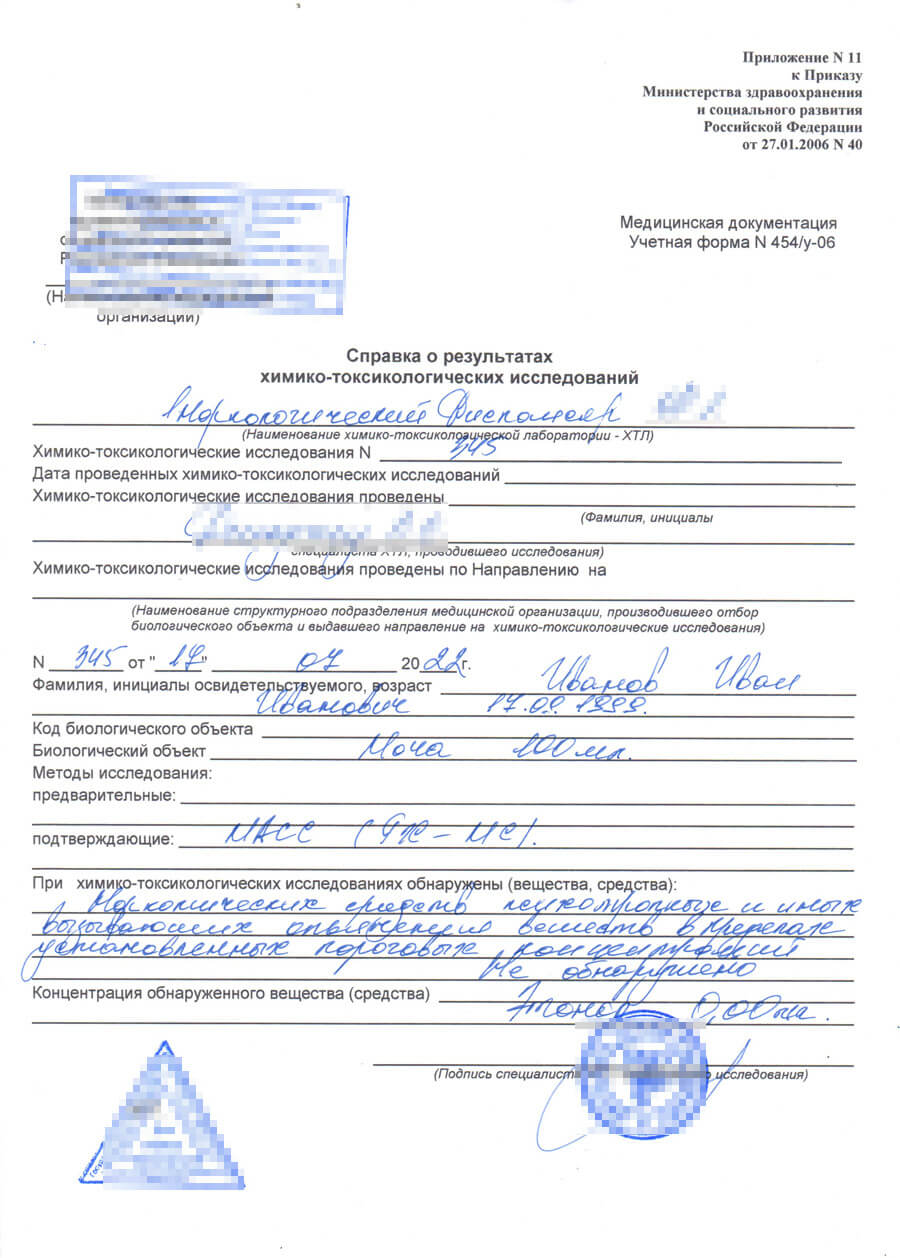 Приложение N 11
к Приказу
Министерства здравоохранения
и социального развития
Российской Федерации
от 27.01.2006 N 40
Медицинская документация
Учетная форма N 454/у-06
организации)
Справка о результатах
химико-токсикологических исследований
Наркологический Диспансер №1
(Наименование химико-токсикологической лаборатории - ХТЛ)
Химико-токсикологические исследования N 345
Дата проведенных химико-токсикологических исследований
Химико-токсикологические исследования проведены
(Фамилия, инициалы
специалиста ХТЛ, проводившего исследования)
Химико-токсикологические исследования проведены по Направлению на
(Наименование структурного подразделения медицинской организации, производившего отбор
биологического объекта и выдавшего направление на химико-токсикологические исследования)
N 345 от "17" 07 2022г.
Фамилия, инициалы освидетельствуемого, возраст Иванов Иван
Иванович 17.09.1999.
Код биологического объекта
Биологический объект Моча 100мл.
Методы исследования:
предварительные:
подтверждающие: МАСС (ГЖ-МС).
При химико-токсикологических исследованиях обнаружены (вещества, средства):
Наркотических средств психотропных и иных
вызывающих опьянения веществ в пределах
установленных пороговых концентраций
Не обнаружено
Концентрация обнаруженного вещества (средства) Этанол 0,00
(Подпись исследования)